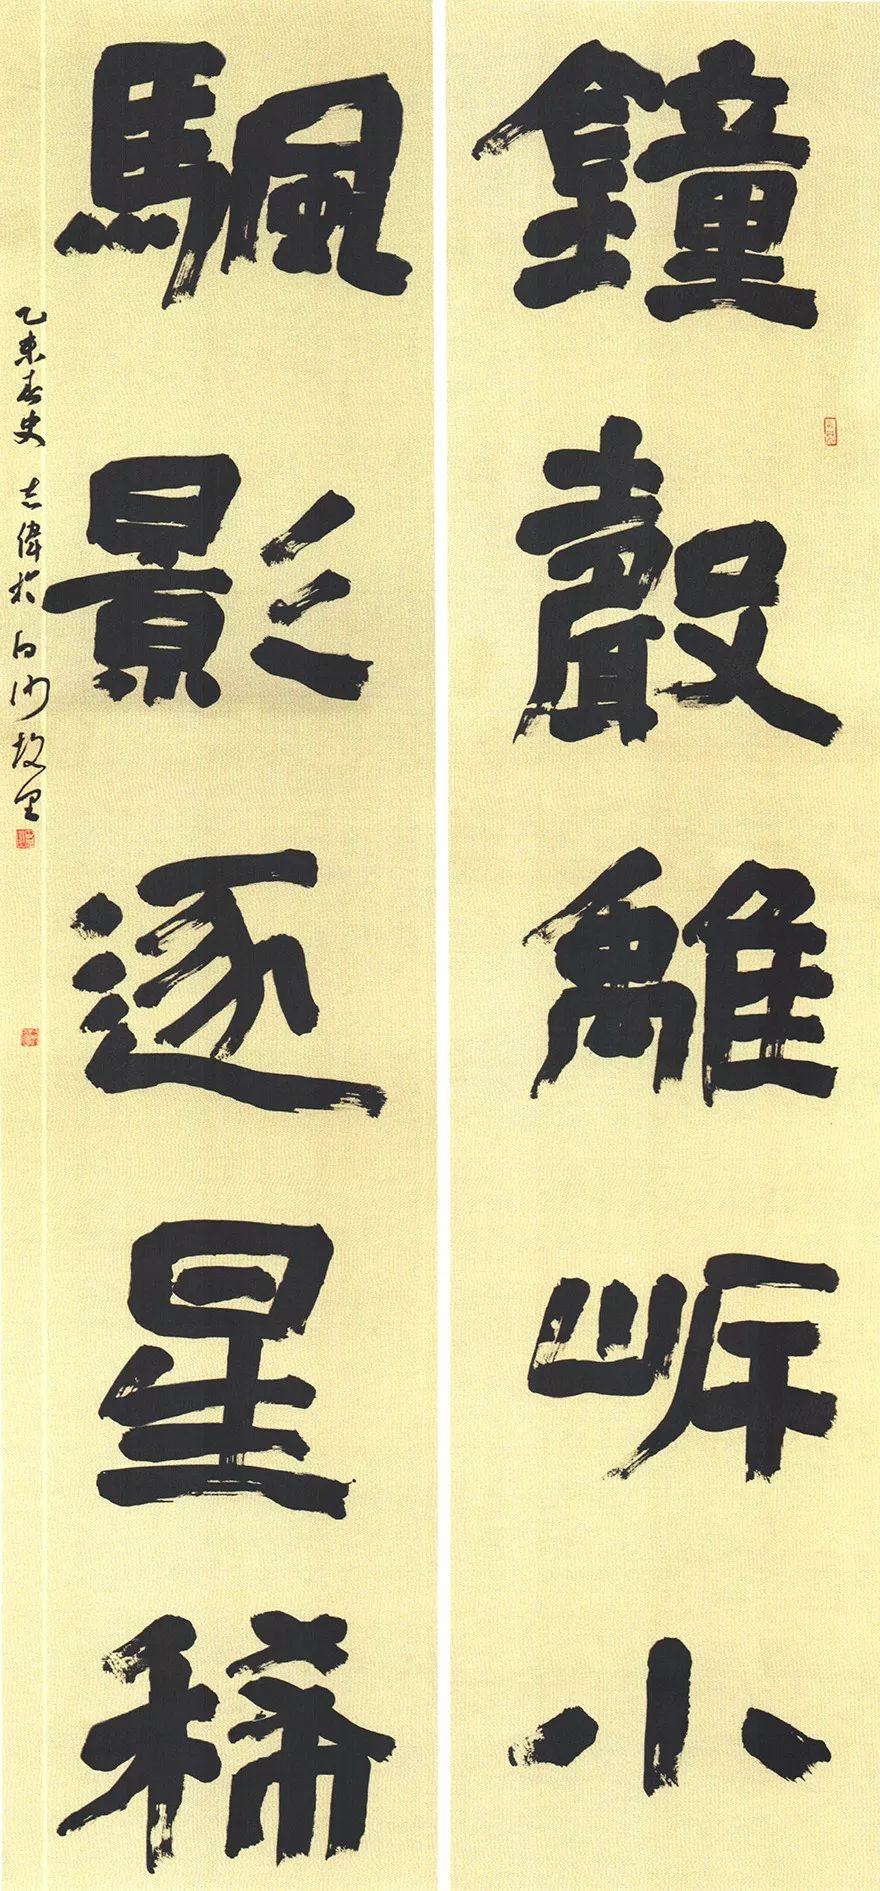 鐘聲離岸小
颿影逐星稀
乙未春史志偉於白沙故里